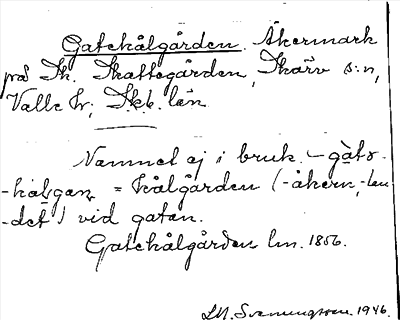 Gatekålgården. Åkermark
på Sk. Skattegården, Skärv s:n,
Valle hr; Skb. län.
Namnet ej i bruk. – gàto-
-kálgan = kålgården (-åkern, -lan-
-det) vid gatan.
Gatekålgården lm. 1856.
LM. Svenungsson 1946.